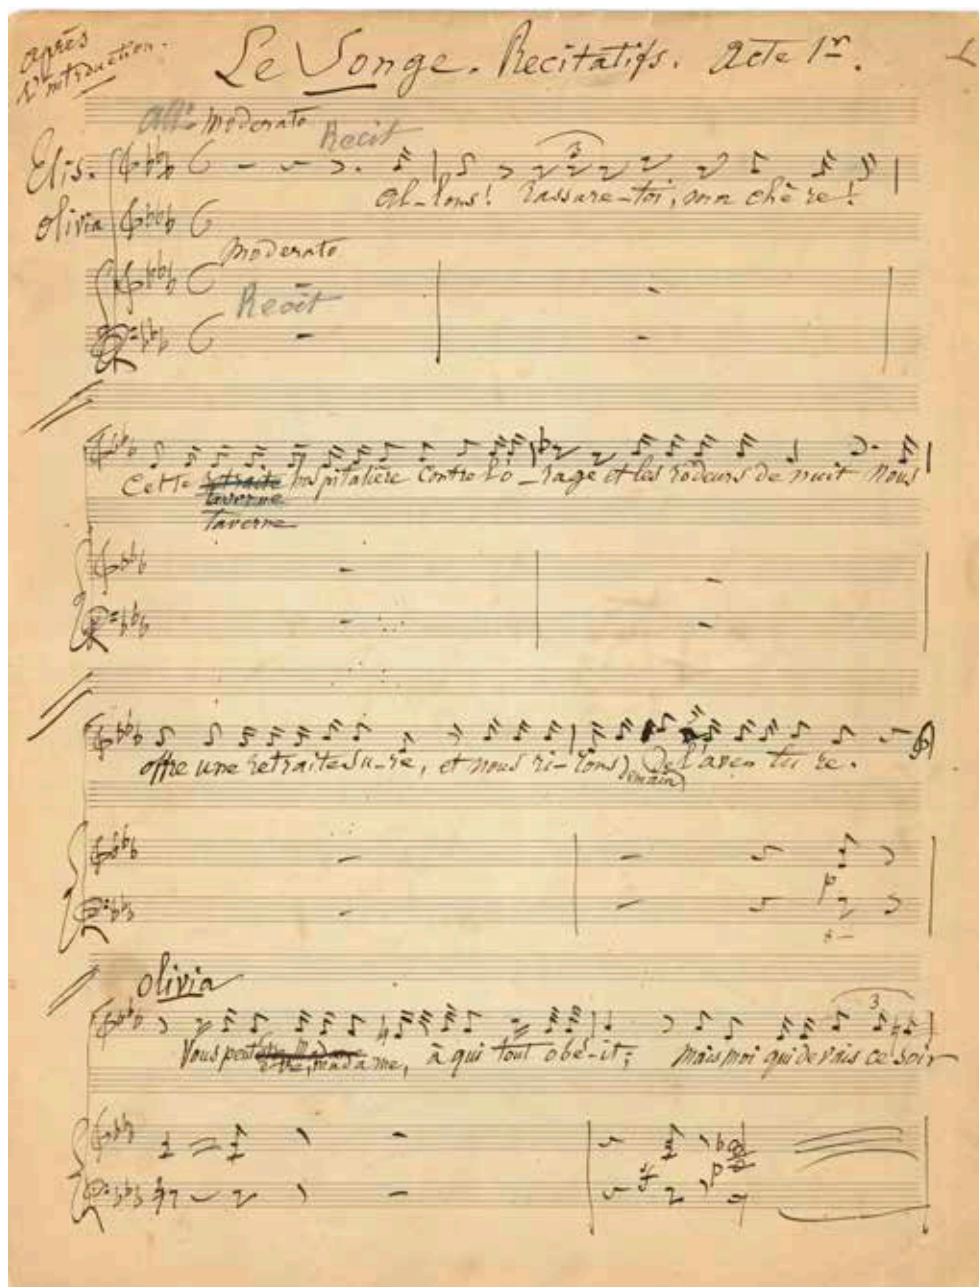 après
l'introduction.
Le Songe. Recitatifs. Acte 1er.
Allo moderato
Recit
Elis.
3
Al-lons! rassure-toi, ma chère!
olivia
moderato
Recit
Cette retraite hospitalière contre l'o-rage et les rôdeurs de nuit nous
taverne
taverne
offre une retraite su-re, et nous ri-rons de l'aven tu re.
demain
olivia
3
Vous peut être, madame, à qui tout obé-it; mais moi qui devais ce soir
p
p